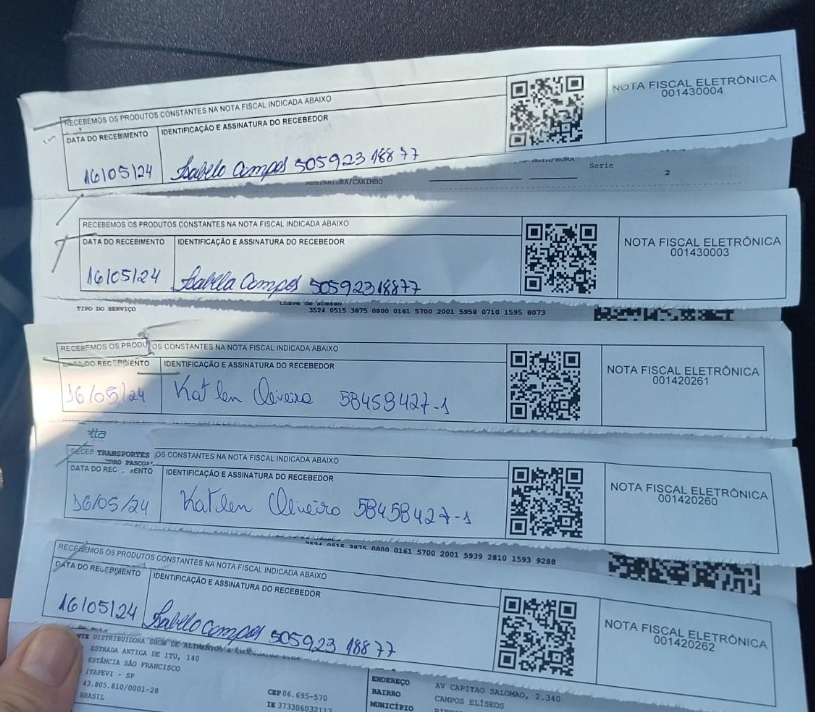 RECEBEMOS OS PRODUTOS CONSTANTES NA NOTA FISCAL INDICADA ABAIXO
DATA DO RECEBIMENTO
IDENTIFICAÇÃO E ASSINATURA DO RECEBEDOR
16/05/24
Isabela Campos 505923 188 77
NOTA FISCAL ELETRÔNICA
001430004
Serie
2
RECEBEMOS OS PRODUTOS CONSTANTES NA NOTA FISCAL INDICADA ABAIXO
DATA DO RECEBIMENTO
IDENTIFICAÇÃO E ASSINATURA DO RECEBEDOR
16/05/24
Isabela Campos 50592318877
NOTA FISCAL ELETRÔNICA
001430003
TIPO DO SERVIÇO
Chave de acesso
3524 0515 3875 0800 0161 5700 2001 5958 0710 1595 8073
RECEBEMOS OS PRODUTOS CONSTANTES NA NOTA FISCAL INDICADA ABAIXO
DATA DO RECEBIMENTO
IDENTIFICAÇÃO E ASSINATURA DO RECEBEDOR
16/05/24
Katlen Oliveira 58458427-1
NOTA FISCAL ELETRÔNICA
001420261
RECEB TRANSPORTES OS CONSTANTES NA NOTA FISCAL INDICADA ABAIXO
DATA DO REC ENTO
IDENTIFICAÇÃO E ASSINATURA DO RECEBEDOR
16/05/24
Katlen Oliveira 58458427-1
NOTA FISCAL ELETRÔNICA
001420260
3524 0515 3875 0800 0161 5700 2001 5939 2810 1593 9288
RECEBEMOS OS PRODUTOS CONSTANTES NA NOTA FISCAL INDICADA ABAIXO
DATA DO RECEBIMENTO
IDENTIFICAÇÃO E ASSINATURA DO RECEBEDOR
16/05/24
Isabela Campos 505923 188 77
NOTA FISCAL ELETRÔNICA
001420262
DISTRIBUIDORA SHOW DE ALIMENTOS
ESTRADA ANTIGA DE ITU, 140
ESTÂNCIA SÃO FRANCISCO
ITAPEVI - SP
43.805.810/0001-28
BRASIL
CEP 06.695-570
IE
ENDEREÇO AV CAPITAO SALOMAO, 2.340
BAIRRO CAMPOS ELÍSEOS
MUNICÍPIO